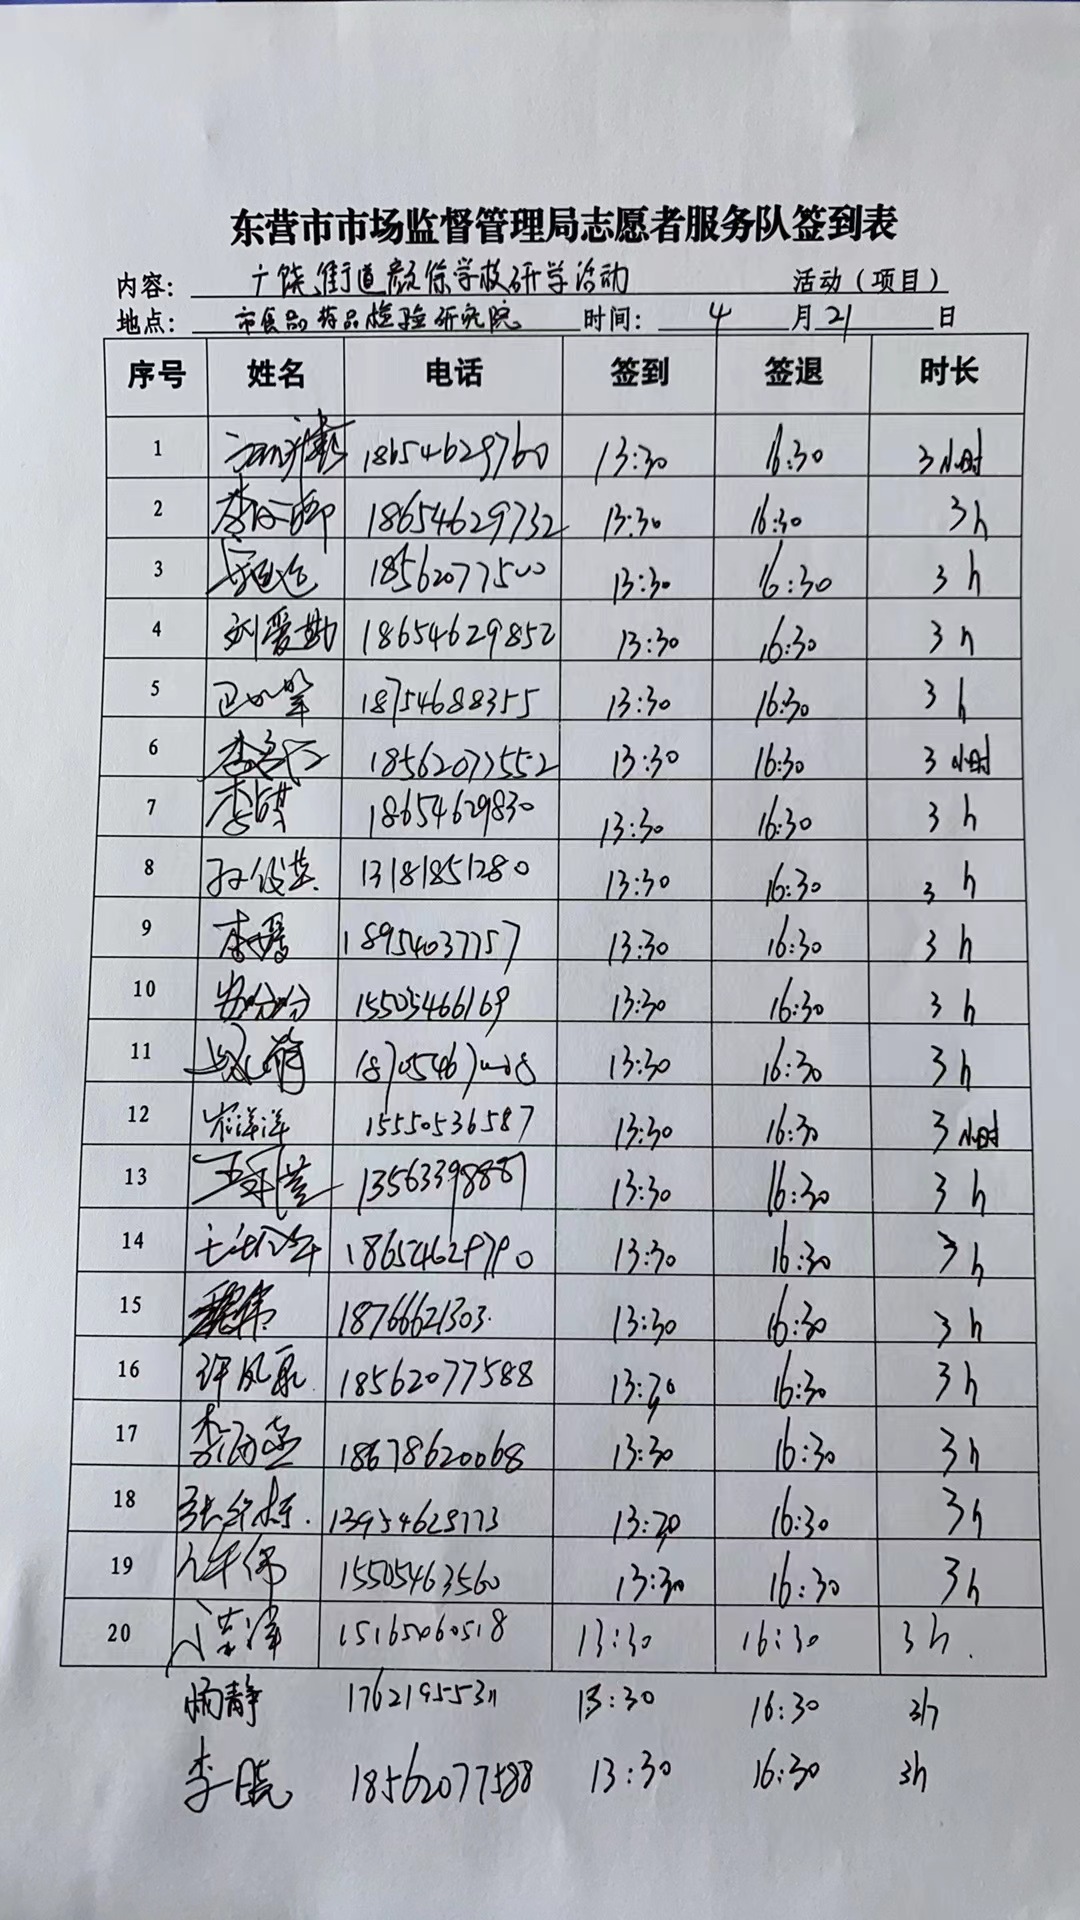 东营市市场监督管理局志愿者服务队签到表
内容: 广饶街道颜徐学校研学活动 活动（项目）
地点: 市食品药品检验研究院 时间: 4 月 21 日
序号 姓名 电话 签到 签退 时长
1 18654629760 13:30 16:30 3小时
2 18654629732 13:30 16:30 3h
3 18562077500 13:30 16:30 3h
4 刘爱勤 18654629852 13:30 16:30 3h
5 18754688355 13:30 16:30 3h
6 18562077552 13:30 16:30 3小时
7 李媒 18654629830 13:30 16:30 3h
8 孙俊英 13181851280 13:30 16:30 3h
9 李嫚 18954037757 13:30 16:30 3h
10 安份份 15505466169 13:30 16:30 3h
11 13:30 16:30 3h
12 崔洋洋 15550536587 13:30 16:30 3小时
13 13563398887 13:30 16:30 3h
14 18654629790 13:30 16:30 3h
15 18766621303. 13:30 16:30 3h
16 许凤泉 18562077588 13:30 16:30 3h
17 18678620068 13:30 16:30 3h
18 13954629773 13:30 16:30 3h
19 15505463560 13:30 16:30 3h
20 15165060518 13:30 16:30 3h.
静 17621955311 13:30 16:30 3h
李晓 18562077588 13:30 16:30 3h